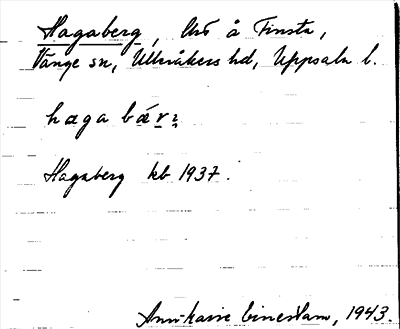 Hagaberg, Urs å Finsta,
Vänge sn, Ulleråkers hd, Uppsala l.
haga bǽrꝫ
Hagaberg kb 1937.
Ann-Karie, 1943.